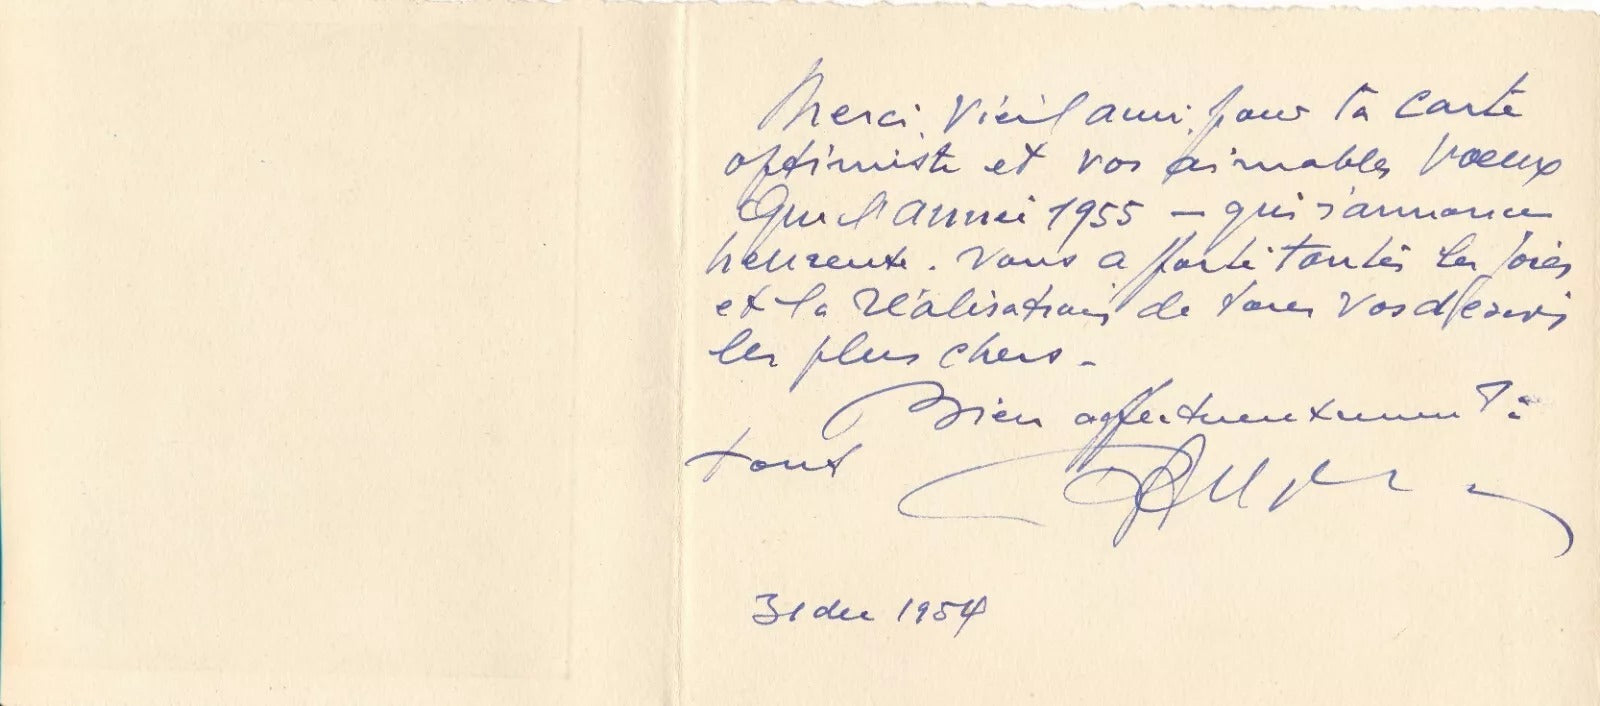 Merci, Vieil ami, pour ta carte
optimiste et vos aimables vœux
Que l'année 1955 — qui s'annonce
heureuse. vous apporte toutes les joies
et la réalisation de tous vos désirs
les plus chers -
Bien affectueusement à
tous
31 dec 1954